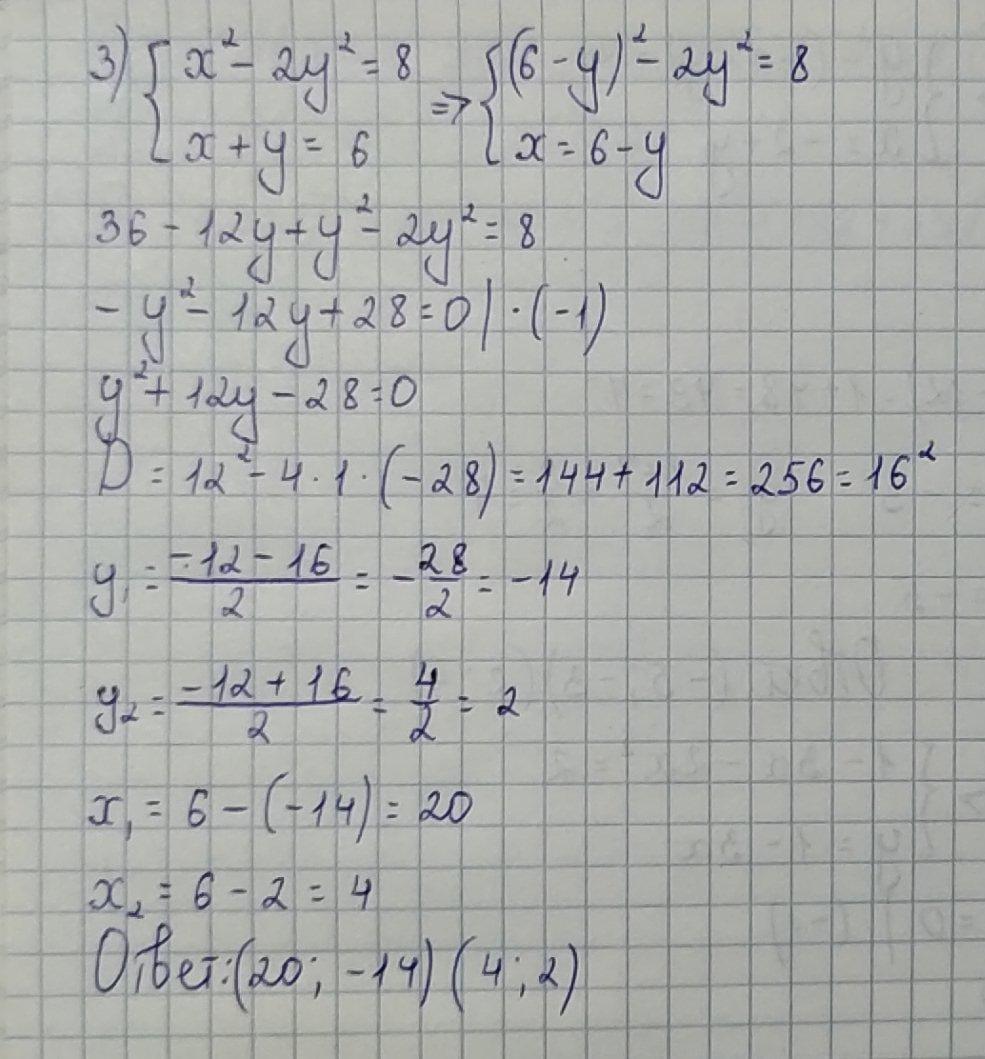 3) { x² - 2y² = 8 => { (6 - y)² - 2y² = 8
x + y = 6 x = 6 - y
36 - 12y + y² - 2y² = 8
- y² - 12y + 28 = 0 | · (-1)
y² + 12y - 28 = 0
D = 12² - 4 · 1 · (-28) = 144 + 112 = 256 = 16²
y₁ = (-12 - 16)/2 = - 28/2 = -14
y₂ = (-12 + 16)/2 = 4/2 = 2
x₁ = 6 - (-14) = 20
x₂ = 6 - 2 = 4
Ответ: (20; -14) (4; 2)